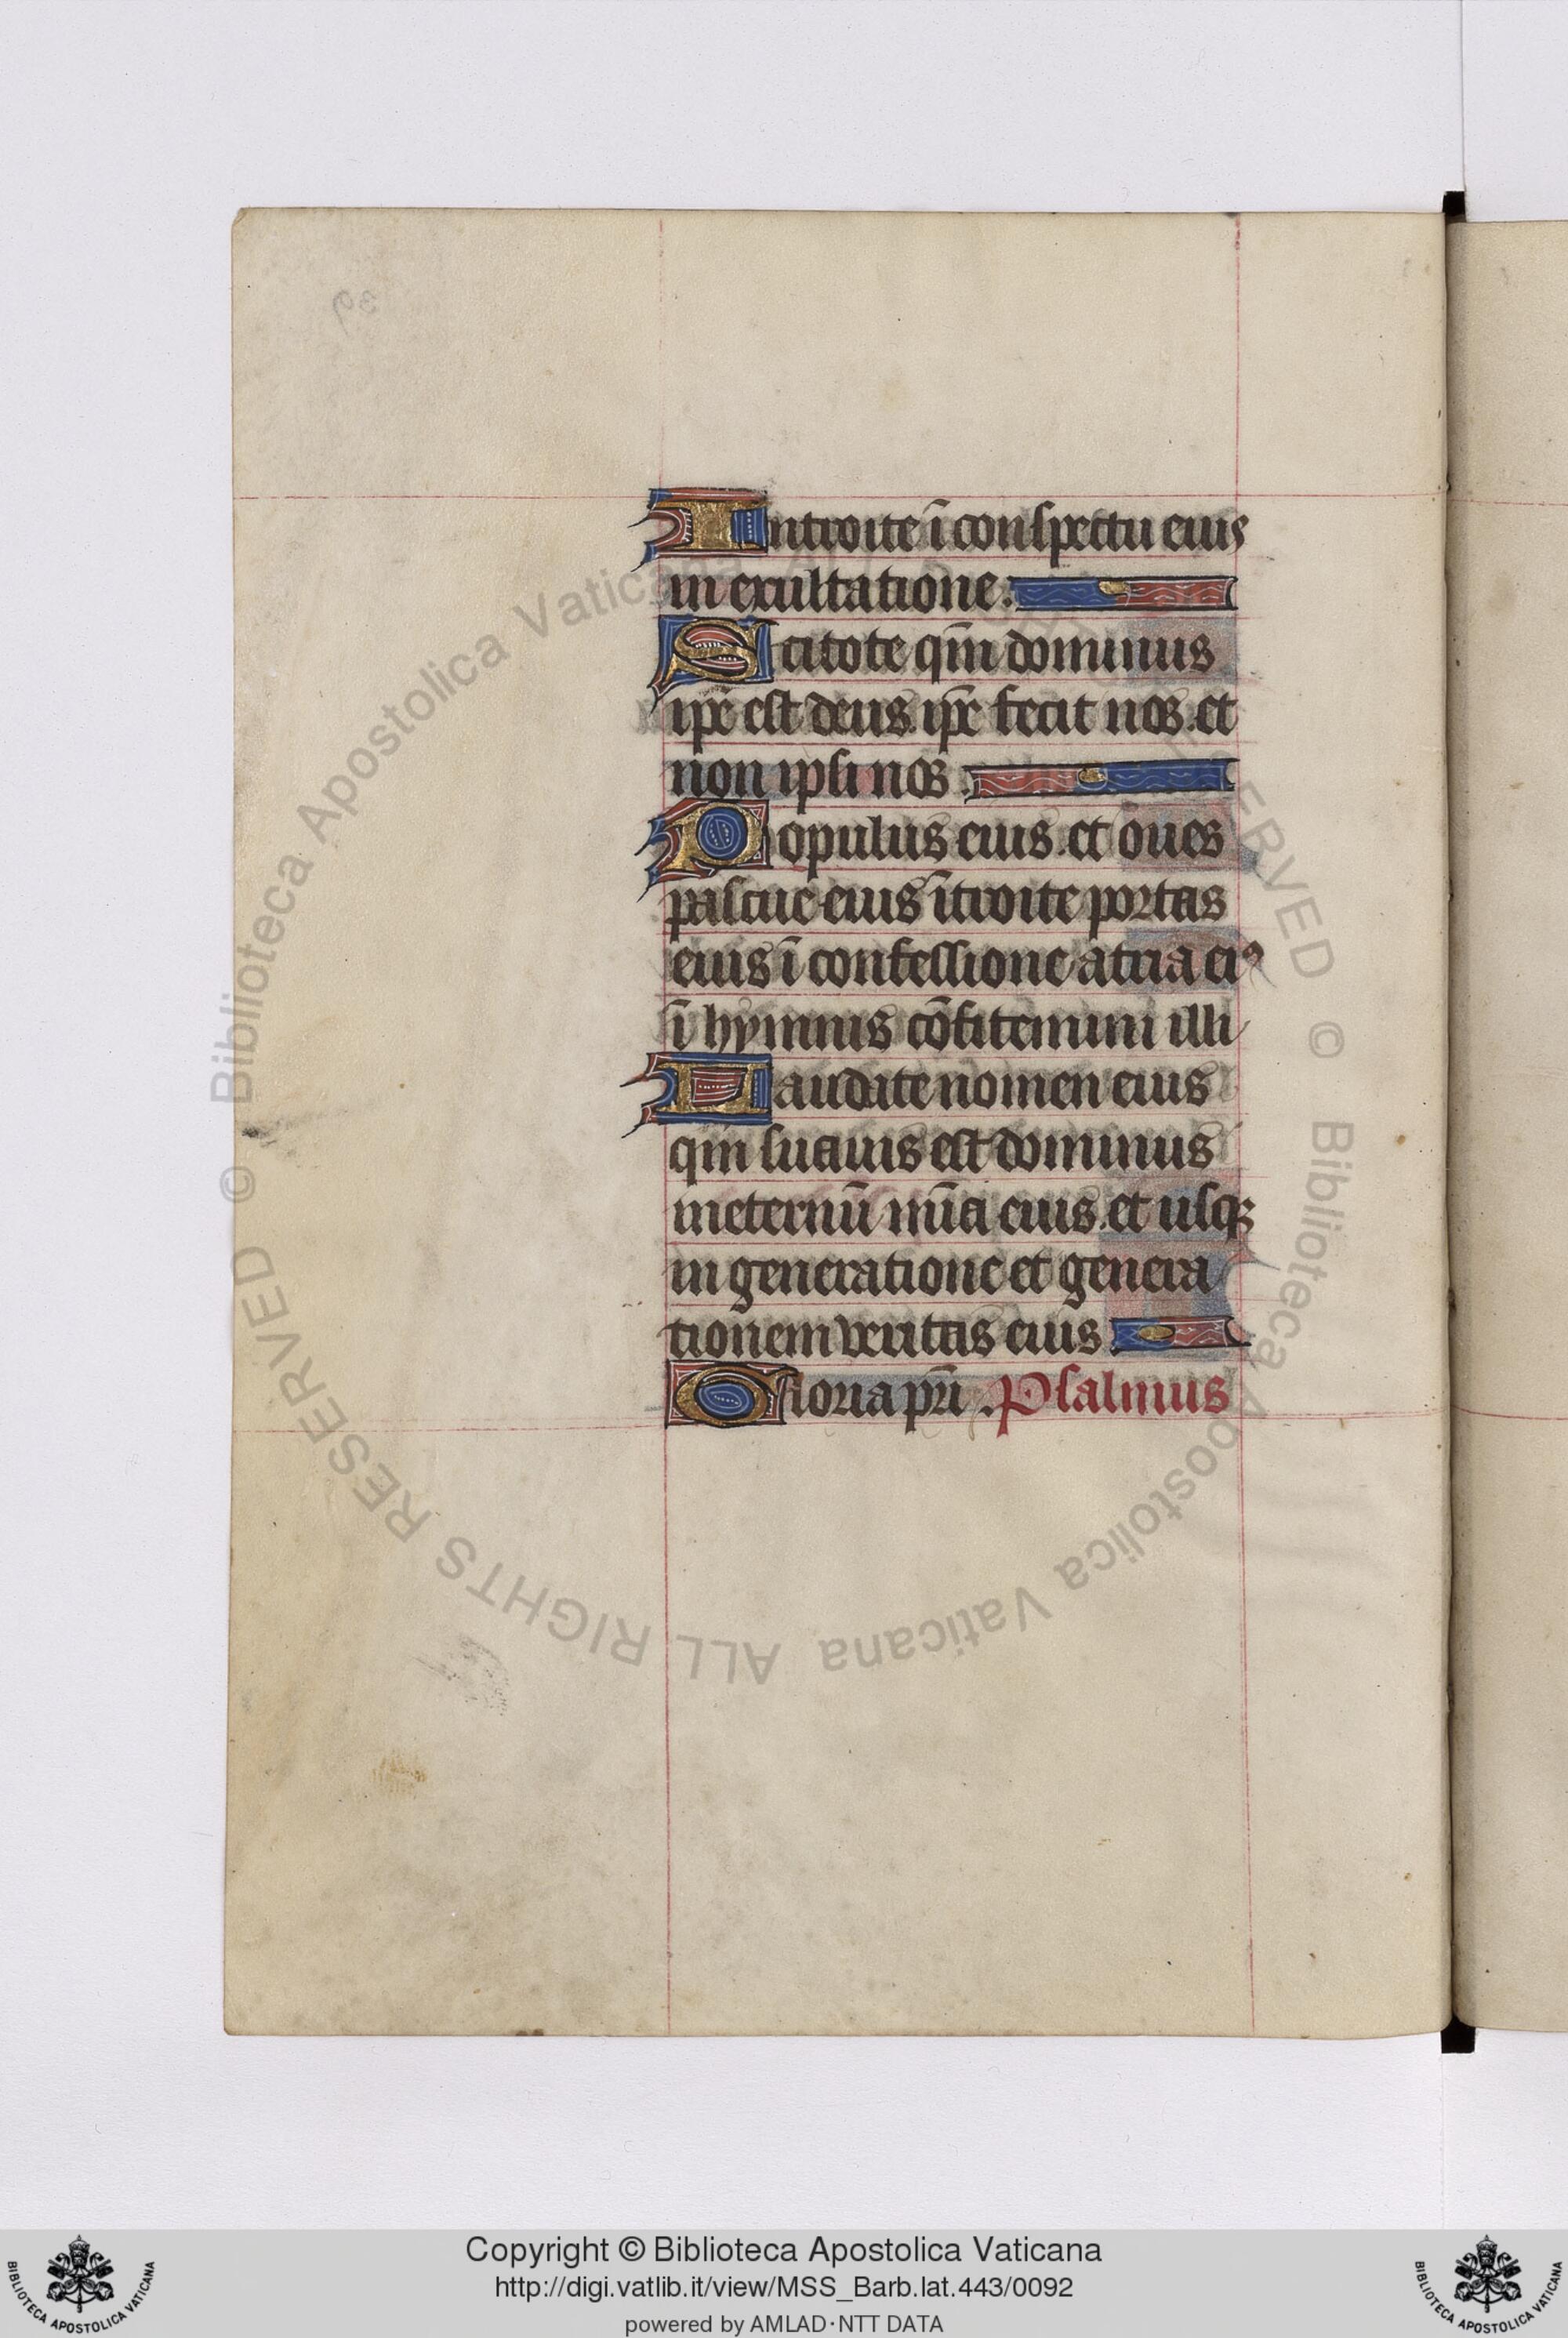 Introite ī conspectu eius
in exultatione.
Scitote qm̄ dominus
ip̄e est deus. ip̄e fecit nos. et
non ipsi nos.
Populus eius. et oues
pascue eius ītroite portas
eius ī confessione atria eiꝰ
ī hymnis cōfitemini illi
Laudate nomen eius
qm̄ suauis est dominus
ineternū mīa eius. et usqꝫ
in generatione et genera
tionem veritas eius.
Gloria pr̄i. Psalmus
39
© Biblioteca Apostolica Vaticana ALL RIGHTS RESERVED © Biblioteca Apostolica Vaticana ALL RIGHTS RESERVED
Copyright © Biblioteca Apostolica Vaticana
http://digi.vatlib.it/view/MSS_Barb.lat.443/0092
powered by AMLAD·NTT DATA
BIBLIOTECA APOSTOLICA VATICANA
BIBLIOTECA APOSTOLICA VATICANA